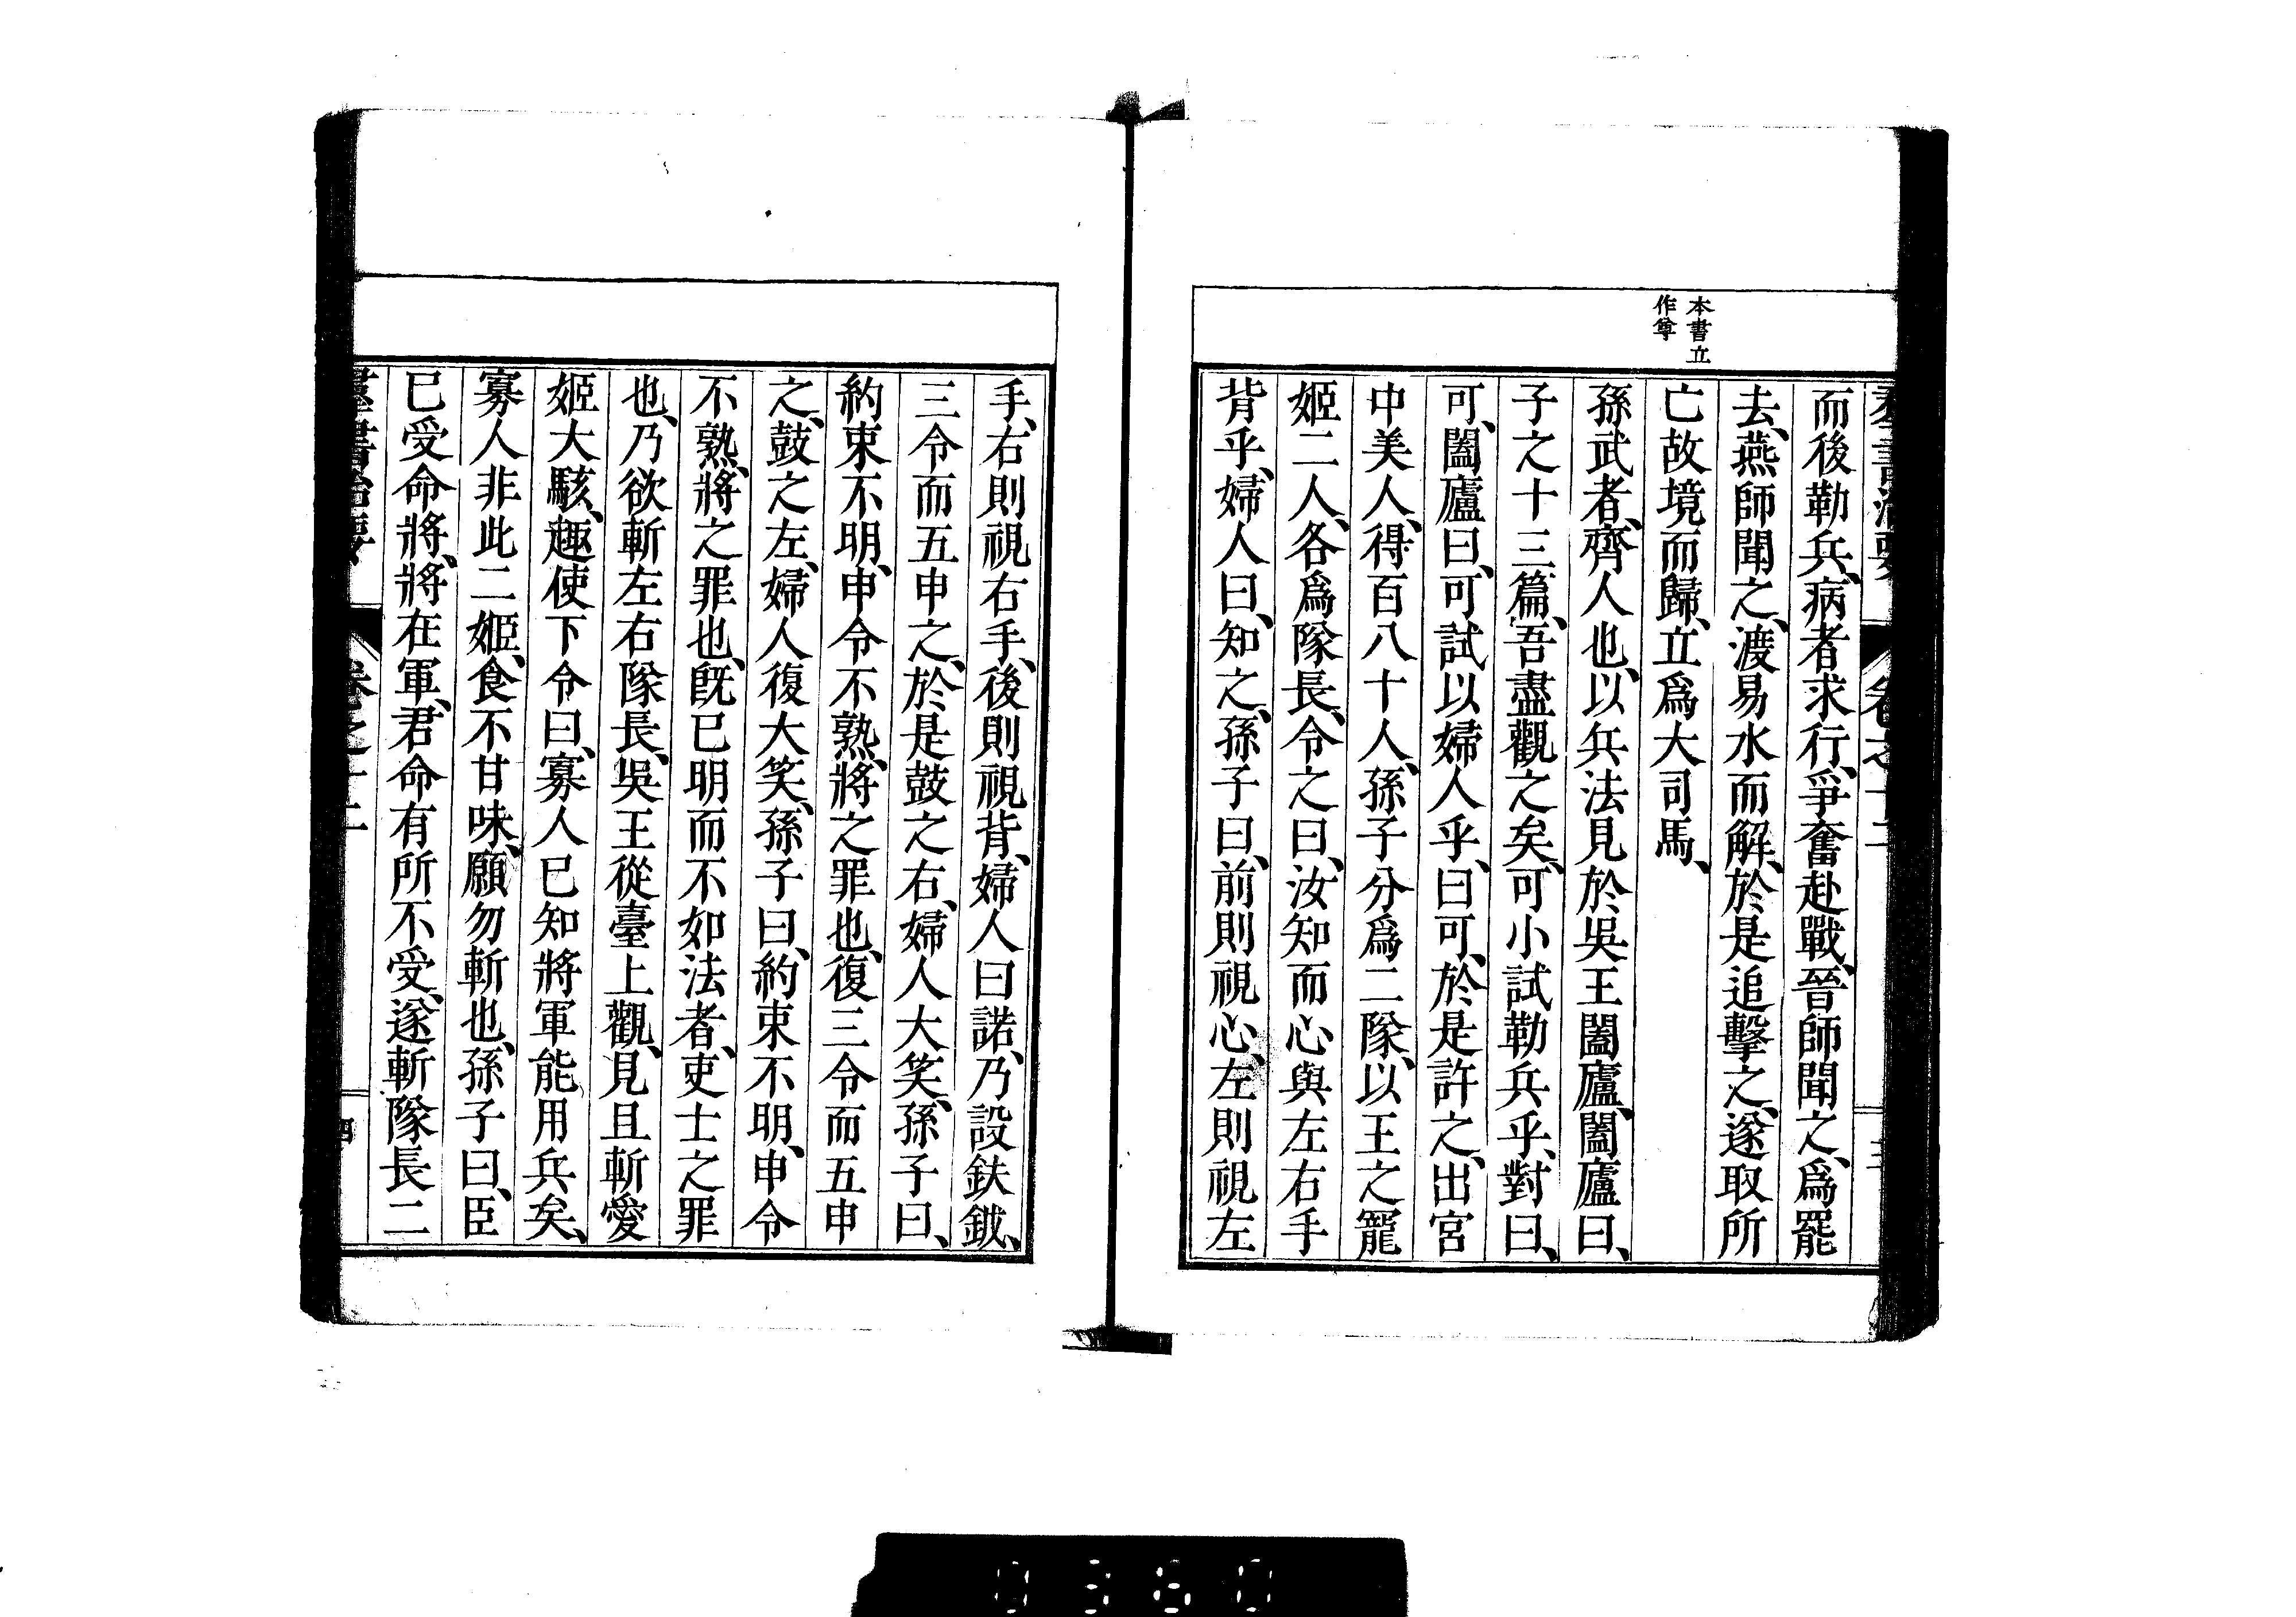 本書立
作尊
羣書治要 卷之十二 三
而後勒兵、病者求行、爭奮赴戰、晉師聞之、爲罷
去、燕師聞之、渡易水而解、於是追擊之、遂取所
亡故境而歸、立爲大司馬、
孫武者、齊人也、以兵法見於吳王闔廬、闔廬曰、
子之十三篇、吾盡觀之矣、可小試勒兵乎、對曰、
可、闔廬曰、可試以婦人乎、曰可、於是許之、出宮
中美人、得百八十人、孫子分爲二隊、以王之寵
姬二人、各爲隊長、令之曰、汝知而心與左右手
背乎、婦人曰、知之、孫子曰、前則視心、左則視左
手、右則視右手、後則視背、婦人曰諾、乃設鈇鉞、
三令而五申之、於是鼓之右、婦人大笑、孫子曰、
約束不明、申令不熟、將之罪也、復三令而五申
之、鼓之左、婦人復大笑、孫子曰、約束不明、申令
不熟、將之罪也、旣已明而不如法者、吏士之罪
也、乃欲斬左右隊長、吳王從臺上觀、見且斬愛
姬大駭、趣使下令曰、寡人已知將軍能用兵矣、
寡人非此二姬、食不甘味、願勿斬也、孫子曰、臣
已受命將、將在軍、君命有所不受、遂斬隊長二
羣書治要 卷之十二 四
0360